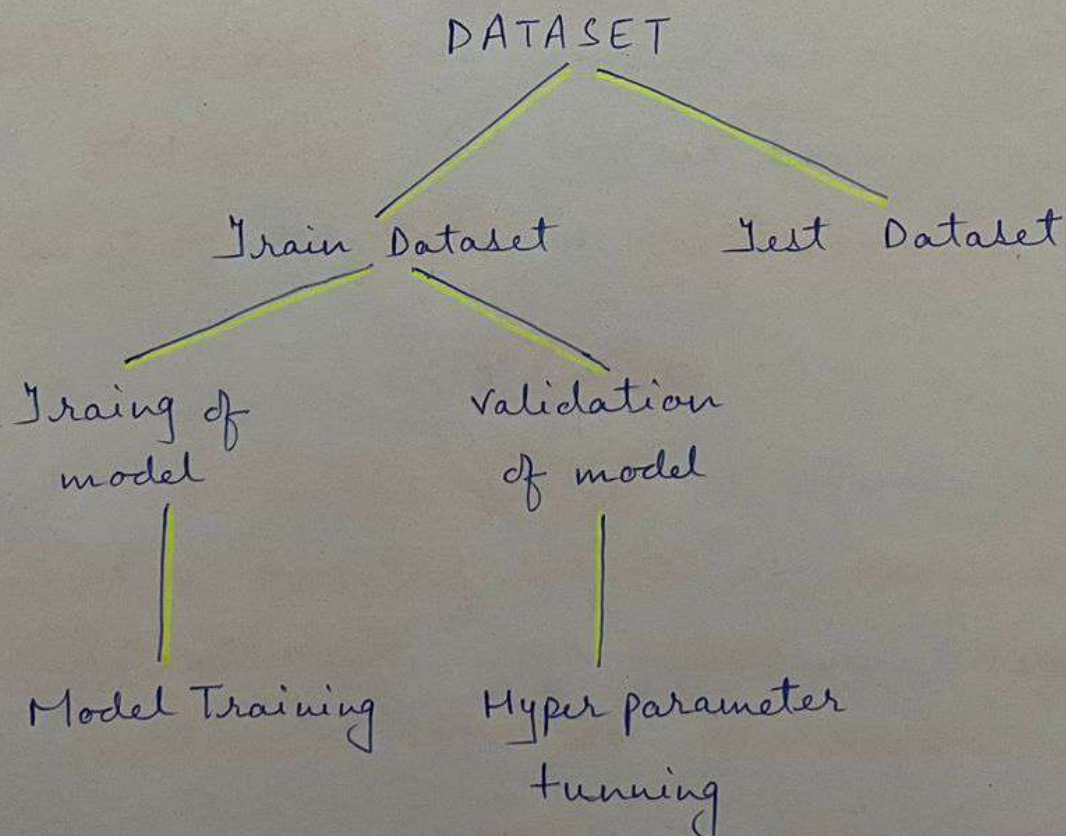 DATASET
Train Dataset
Test Dataset
Traing of
model
Validation
of model
Model Training
Hyper parameter
tunning